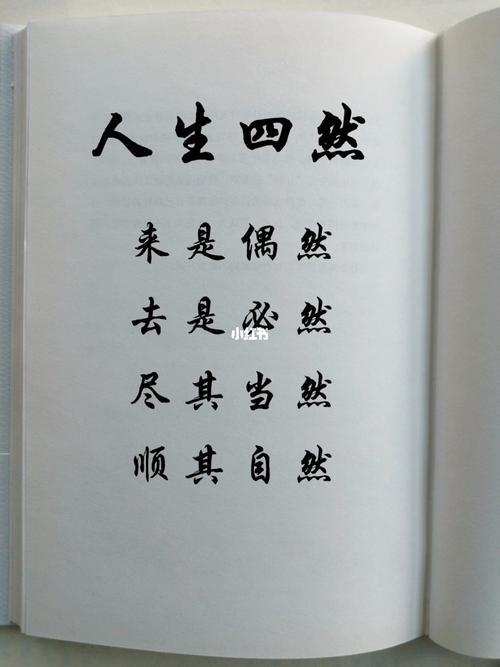 人生四然
来是偶然
去是必然
小红书
尽其当然
顺其自然